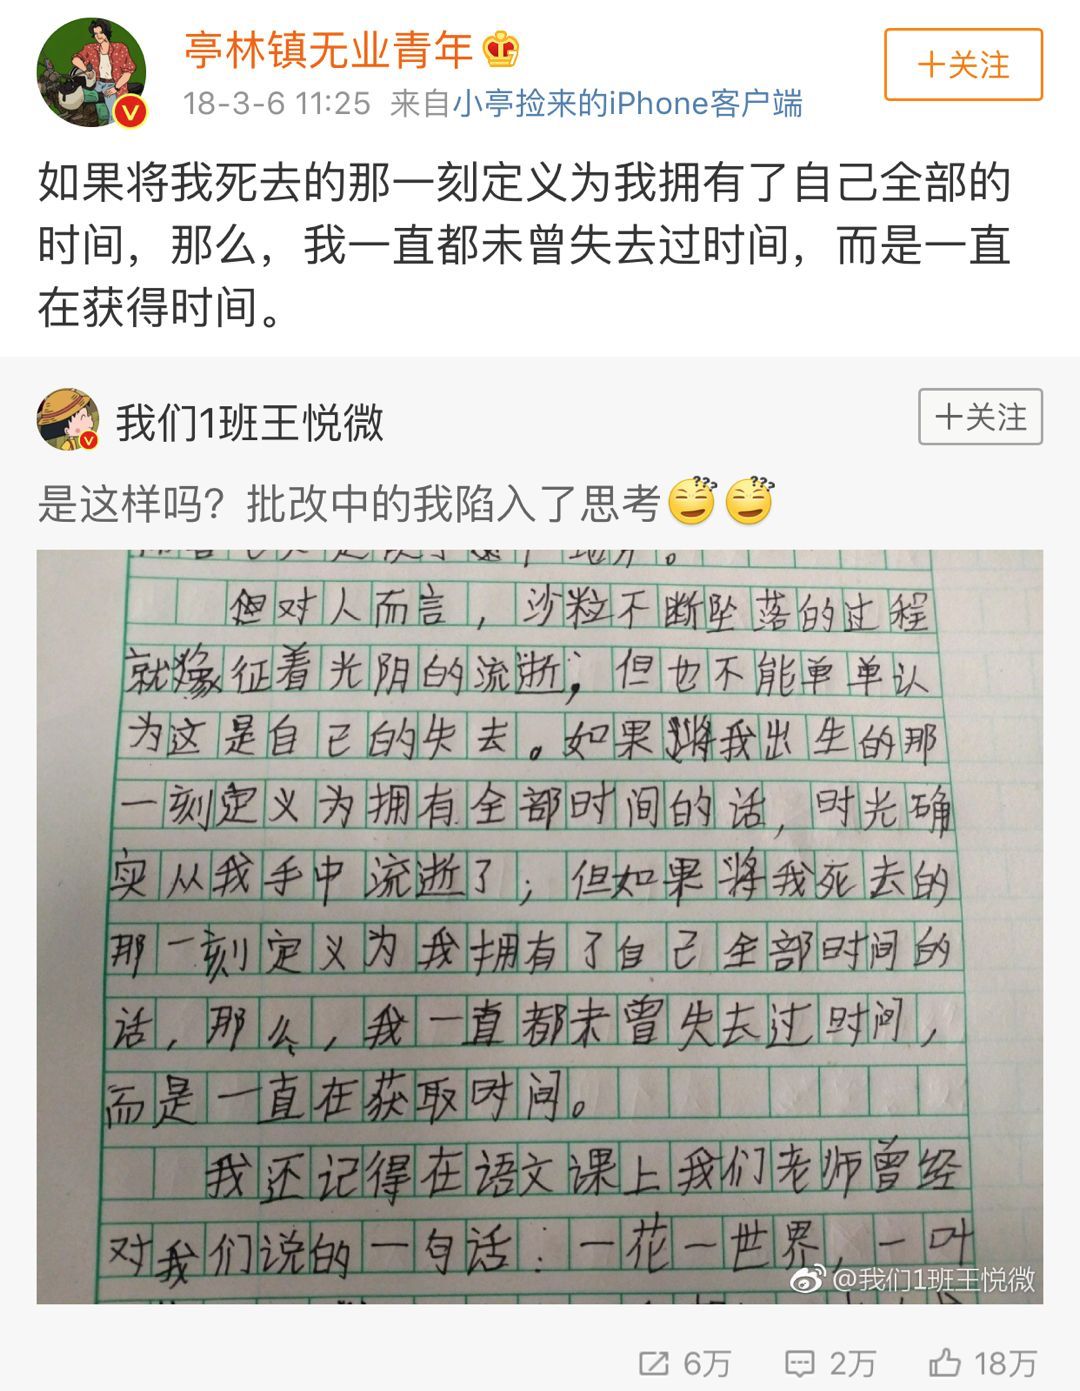 亭林镇无业青年
十关注
18-3-6 11:25 来自小亭捡来的iPhone客户端
如果将我死去的那一刻定义为我拥有了自己全部的
时间，那么，我一直都未曾失去过时间，而是一直
在获得时间。
我们1班王悦微
十关注
是这样吗？批改中的我陷入了思考
但对人而言，沙粒不断坠落的过程
就象征着光阴的流逝；但也不能单单认
为这是自己的失去。如果将我出生的那
一刻定义为拥有全部时间的话，时光确
实从我手中流逝了；但如果将我死去的
那一刻定义为我拥有了自己全部时间的
话，那么，我一直都未曾失去过时间，
而是一直在获取时间。
我还记得在语文课上我们老师曾经
对我们说的一句话：一花一世界，一叶
@我们1班王悦微
6万 2万 18万